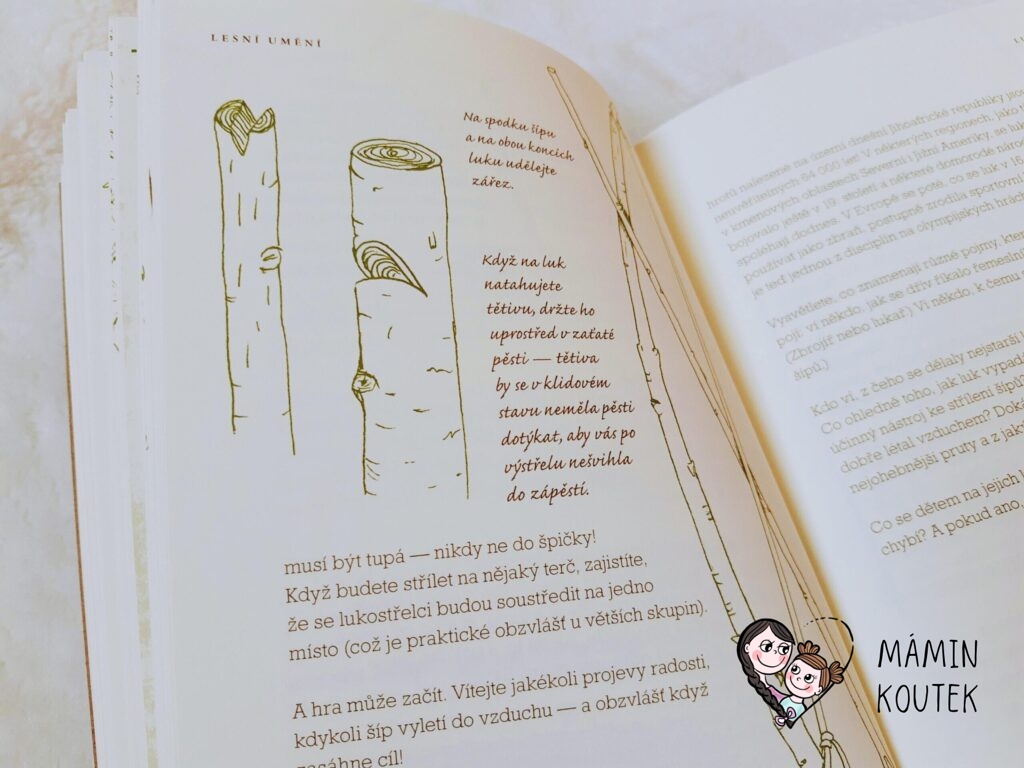 LESNÍ UMĚNÍ
Na spodku šípu
a na obou koncích
luku udělejte
zářez.
Když na luk
natahujete
tětivu, držte ho
uprostřed v zaťaté
pěsti — tětiva
by se v klidovém
stavu neměla pěsti
dotýkat, aby vás po
výstřelu nešvihla
do zápěstí.
musí být tupá — nikdy ne do špičky!
Když budete střílet na nějaký terč, zajistíte,
že se lukostřelci budou soustředit na jedno
místo (což je praktické obzvlášť u větších skupin).
A hra může začít. Vítejte jakékoli projevy radosti,
kdykoli šíp vyletí do vzduchu — a obzvlášť když
zasáhne cíl!
hrotů nalezené na území dnešní Jihoafrické republiky jsou
neuvěřitelných 64 000 let. V některých regionech, jako
v kmenových oblastech Severní i Jižní Ameriky, se luk
bojovalo ještě v 19. století a některé domorodé národ
spoléhají dodnes. V Evropě se poté, co se luk v 16.
používat jako zbraň, postupně zrodila sportovní
je teď jednou z disciplín na olympijských hrác
Vysvětlete, co znamenají různé pojmy, kter
pojí: ví někdo, jak se dřív říkalo řemesln
(Zbrojíř nebo lukař.) Ví někdo, k čemu
šípů?)
Kdo ví, z čeho se dělaly nejstarší
Co ohledně toho, jak luk vypad
účinný nástroj ke střílení šípů?
dobře létal vzduchem? Doká
nejohebnější pruty a z jak
Co se dětem na jejich
chybí? A pokud ano,
MÁMIN
KOUTEK